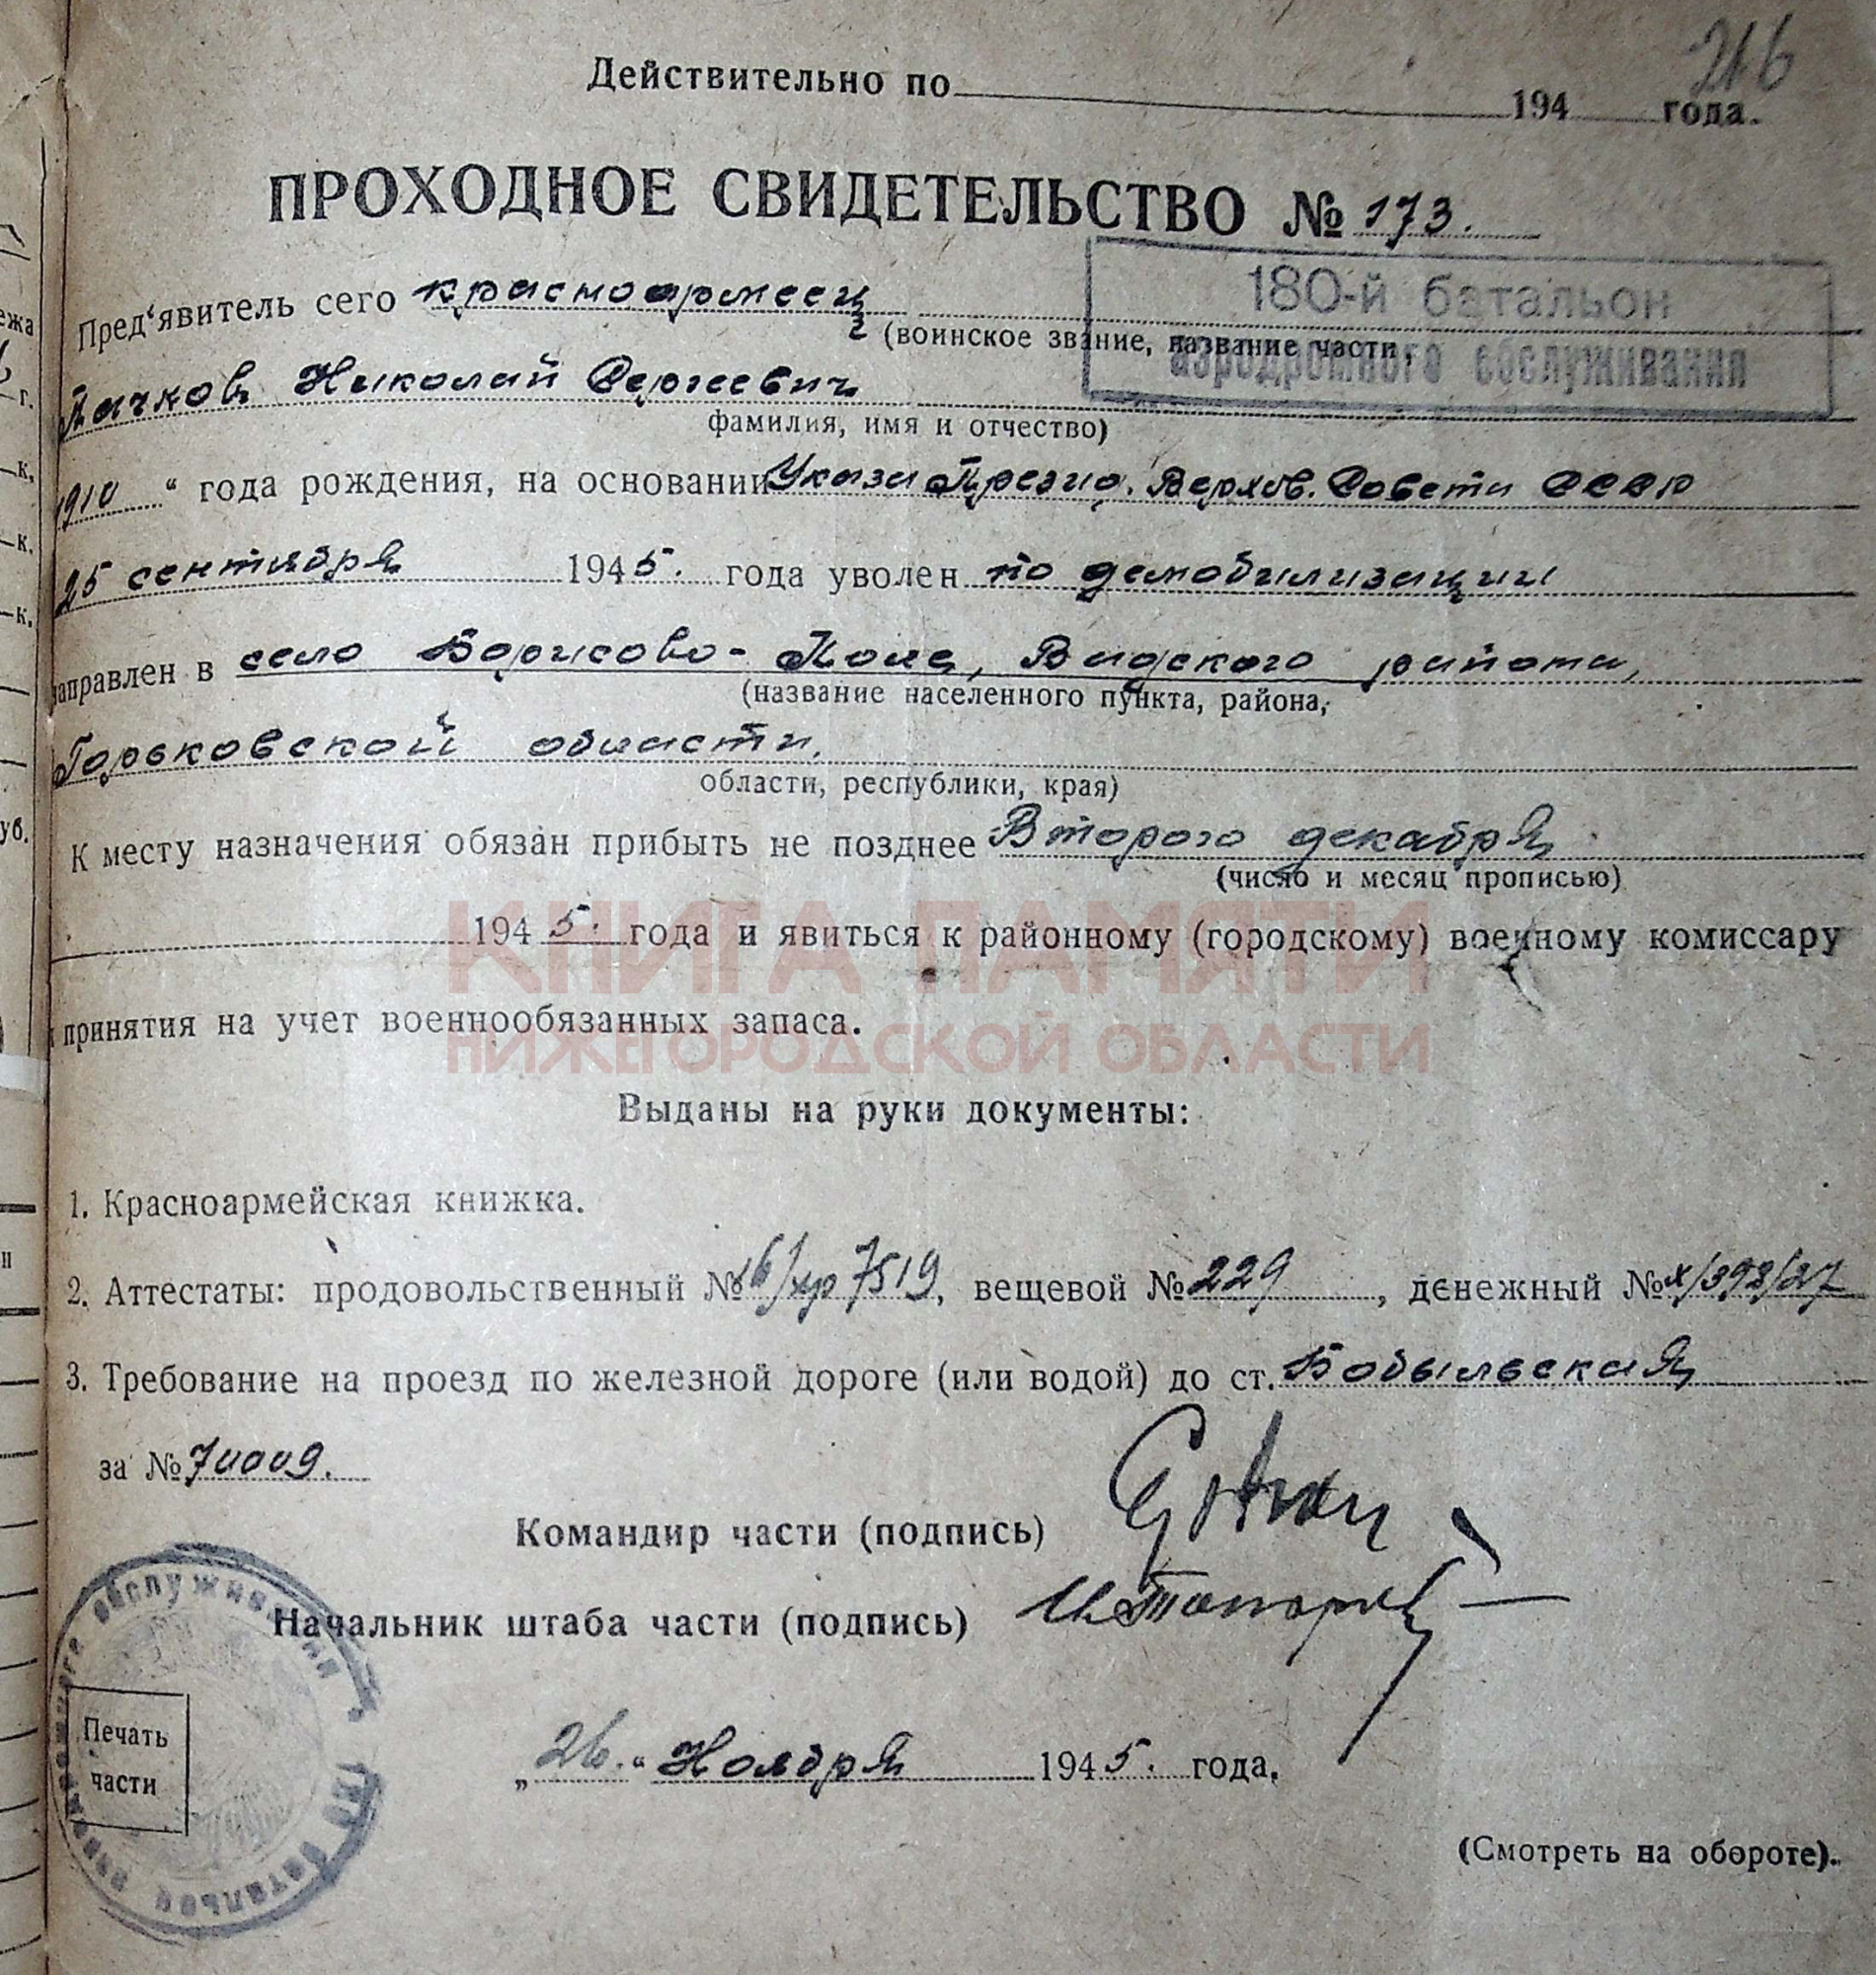 216
Действительно по 194 года.
ПРОХОДНОЕ СВИДЕТЕЛЬСТВО № 173.
180-й батальон
аэродромного обслуживания
Пред‘явитель сего красноармеец
(воинское звание, название части,
Пачков Николай Сергеевич
фамилия, имя и отчество)
1910 “ года рождения, на основании Указа Презид. Верхов. Совета СССР
25 сентября 1945. года уволен по демобилизации
направлен в село Борисово-Поле, Вадского района,
(название населенного пункта, района,
Горьковской области.
области, республики, края)
К месту назначения обязан прибыть не позднее Второго декабря
(число и месяц прописью)
1945. года и явиться к районному (городскому) военному комиссару
принятия на учет военнообязанных запаса.
КНИГА ПАМЯТИ
НИЖЕГОРОДСКОЙ ОБЛАСТИ
Выданы на руки документы:
1. Красноармейская книжка.
2. Аттестаты: продовольственный № 7519, вещевой № 229, денежный №
3. Требование на проезд по железной дороге (или водой) до ст. Бобыльская
за № 70009.
Командир части (подпись)
Начальник штаба части (подпись)
Печать
части
„26.“ Ноября 1945. года.
(Смотреть на обороте).